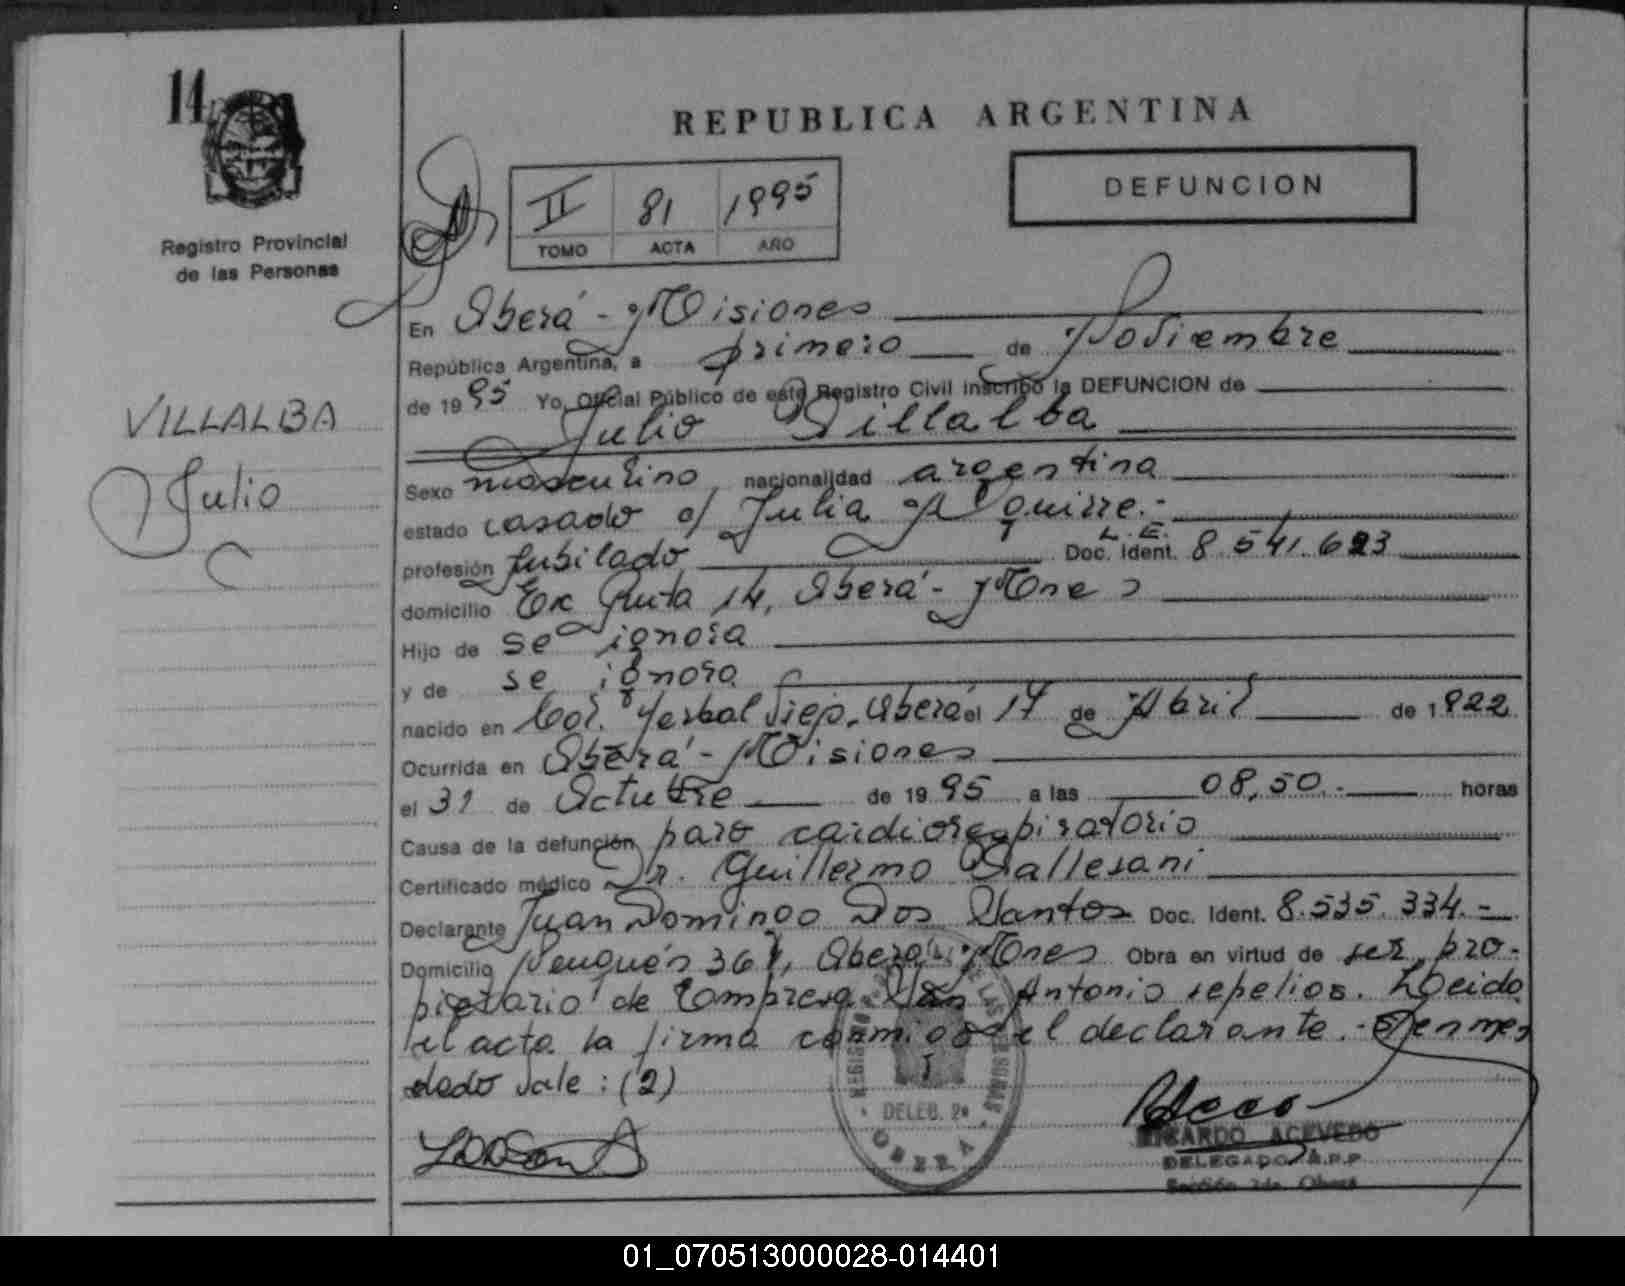 14
REPUBLICA ARGENTINA
DEFUNCION
II 81 1995
TOMO ACTA AÑO
Registro Provincial
de las Personas
VILLALBA
Julio
En Oberá - Misiones
República Argentina, a primero de Noviembre
de 1995 Yo, Oficial Público de este Registro Civil inscribo la DEFUNCION de
Julio Villalba
Sexo masculino nacionalidad argentina
estado casado c/ Julia Aguirre.-
profesión Jubilado Doc. Ident. L.E. 8.541.623
domicilio Ex Ruta 14, Oberá - Mnes
Hijo de se ignora
y de se ignora
nacido en Col. Yerbal Viejo, Oberá el 17 de Abril de 1922
Ocurrida en Oberá - Misiones
el 31 de Octubre de 1995 a las 08,50.- horas
Causa de la defunción paro cardiorespiratorio
Certificado médico Dr. Guillermo Vallesani
Declarante Juan Domingo Dos Santos Doc. Ident. 8.535.334.-
Domicilio Neuquén 367, Oberá - Mnes Obra en virtud de ser pro-
pietario de Empresa San Antonio sepelios. Leida
el acta la firma conmigo el declarante.- Enmen
dado vale: (2)
DELEG. 2a
OBERA
RICARDO ACEVEDO
DELEGADO R.P.P
Sección 2da. Oberá
01_070513000028-014401